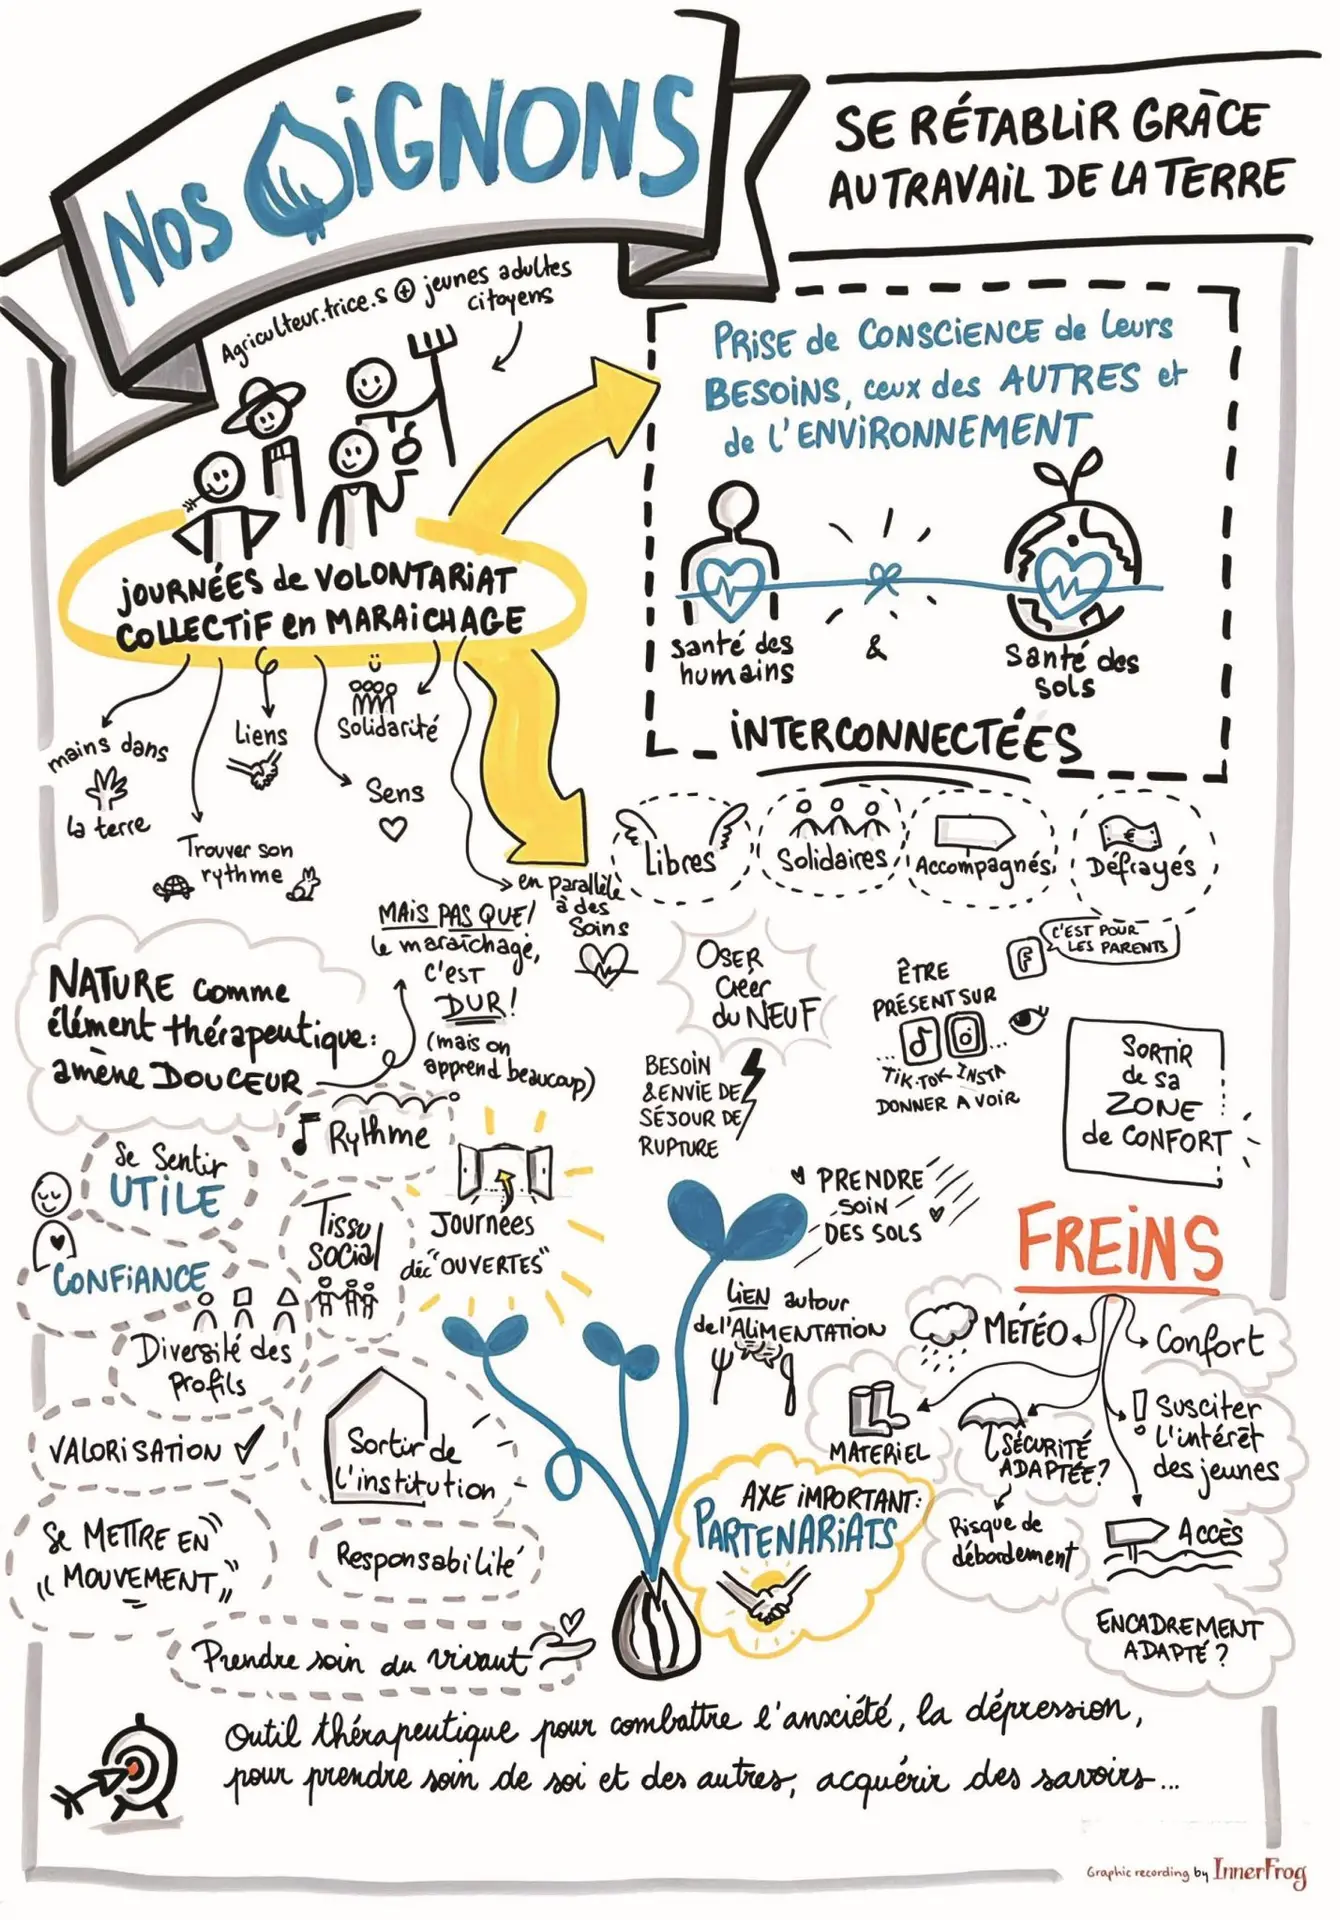 NOS OIGNONS
SE RÉTABLIR GRÂCE
AU TRAVAIL DE LA TERRE
Agriculteur.trice.s + jeunes adultes
citoyens
PRISE de CONSCIENCE de leurs
BESOINS, ceux des AUTRES et
de l'ENVIRONNEMENT
santé des
humains
&
Santé des
sols
INTERCONNECTÉES
JOURNÉES de VOLONTARIAT
COLLECTIF en MARAICHAGE
mains dans
la terre
Trouver son
rythme
Liens
Sens
Solidarité
en parallèle
à des
soins
Libres
Solidaires
Accompagnés
Défrayés
NATURE comme
élément thérapeutique:
amène DOUCEUR
MAIS PAS QUE!
le maraîchage,
c'EST
DUR!
(mais on
apprend beaucoup)
OSER
Créer
du NEUF
BESOIN
& ENVIE DE
SÉJOUR DE
RUPTURE
ÊTRE
PRÉSENT SUR
...
...
TIK-TOK INSTA
DONNER A VOIR
F
C'EST POUR
LES PARENTS
SORTIR
de sa
ZONE
de CONFORT
Se Sentir
UTILE
CONFIANCE
Rythme
Tissu
SOCIAL
Journées
déc"OUVERTES"
Diversité des
Profils
VALORISATION
Sortir de
l'institution
Se METTRE EN
MOUVEMENT
Responsabilité
Prendre soin du vivant
PRENDRE
SOIN
DES SOLS
LIEN autour
de l'ALIMENTATION
AXE IMPORTANT:
PARTENARIATS
FREINS
MÉTÉO
Confort
MATERIEL
SÉCURITÉ
ADAPTÉE?
! Susciter
l'intérêt
des jeunes
Risque de
débordement
ACCÈS
ENCADREMENT
ADAPTÉ?
Outil thérapeutique pour combattre l'anxiété, la dépression,
pour prendre soin de soi et des autres, acquérir des savoirs...
Graphic recording by InnerFrog